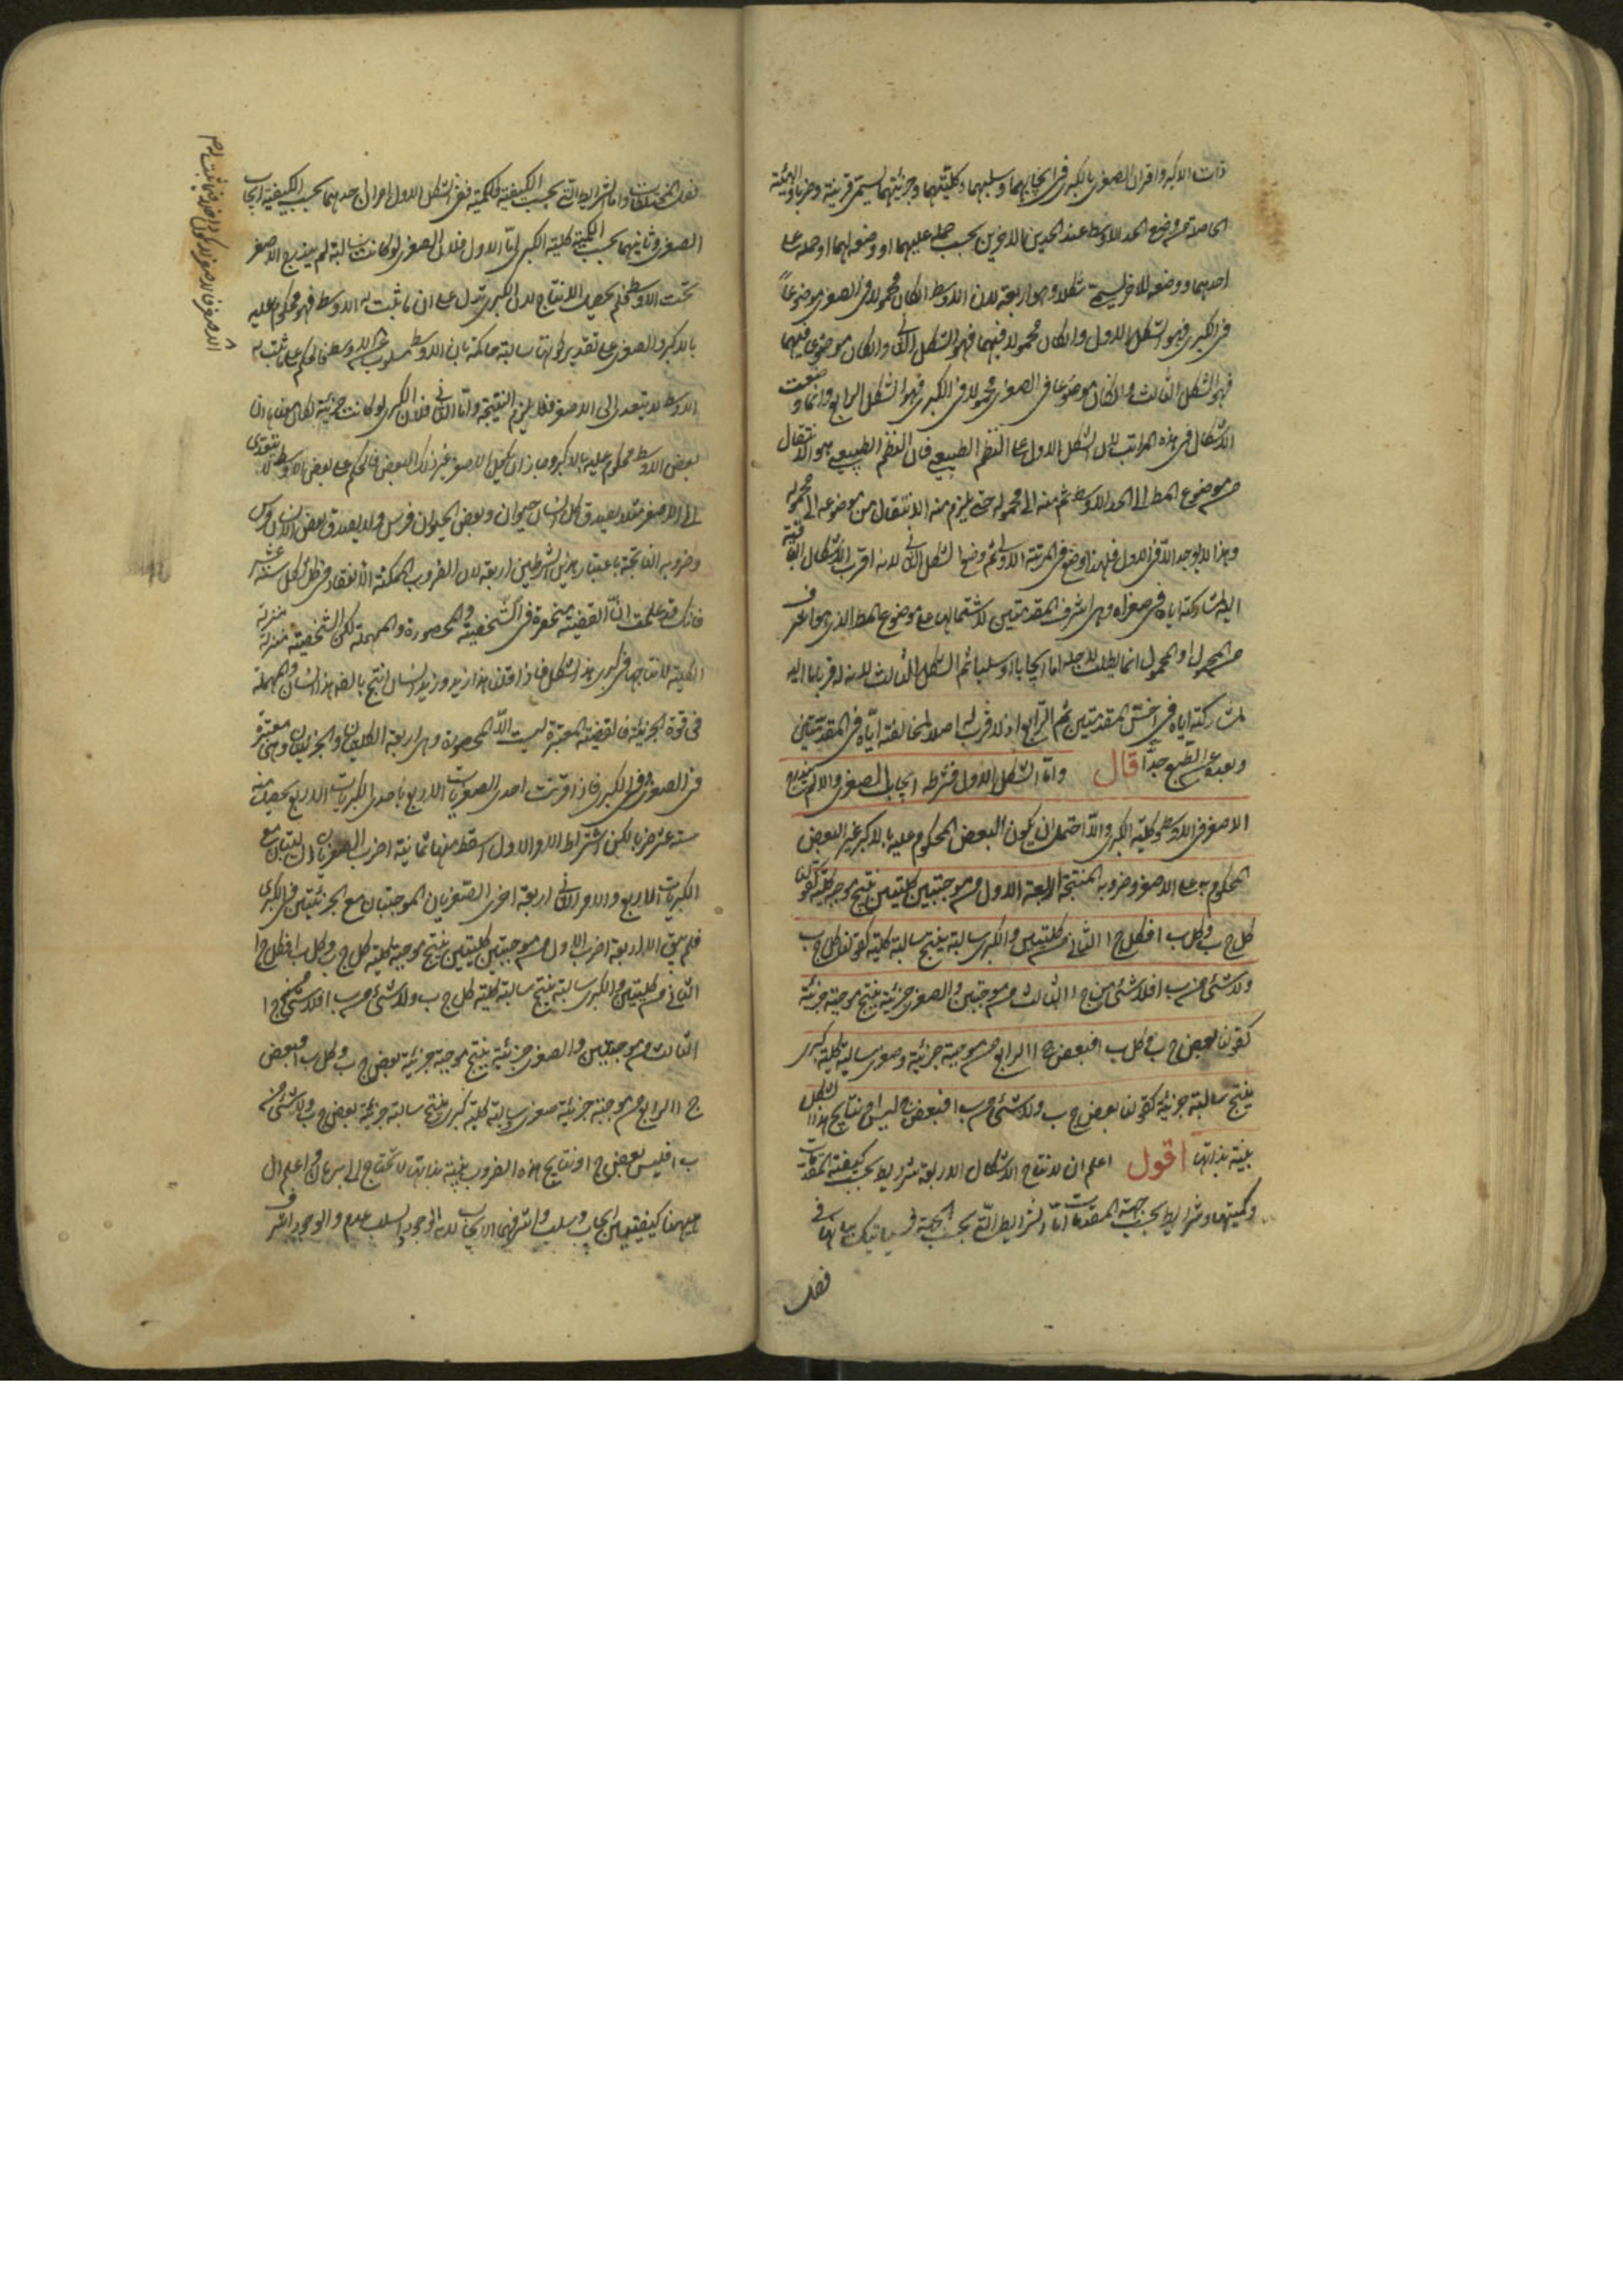 ذات الاكبر واقتران الصغرى بالكبرى فى ايجابهما وسلبهما وكليتهما وجزئيتهما يسمى قرينة وضربا والهيئة
الحاصلة من وضع الحد الاوسط عند الحدين الاخرين بحسب حمله عليهما او وضعه لهما او حمله على
احدهما ووضعه للاخر يسمى شكلا وهو اربعة لان الاوسط ان كان محمولا فى الصغرى موضوعاً
فى الكبرى فهو الشكل الاول وان كان محمولا فيهما فهو الشكل الثانى وان كان موضوعا فيهما
فهو الشكل الثالث وان كان موضوعا فى الصغرى محمولا فى الكبرى فهو الشكل الرابع وانما وضعت
الاشكال فى هذه المراتب لان الشكل الاول على النظم الطبيعى فان النظم الطبيعى هو الانتقال
من موضوع المط الى الحد الاوسط ثم منه الى محموله حتى يلزم منه الانتقال من موضوعه الى محموله
وهذا لا يوجد الا فى الاول فلهذا وضع فى المرتبة الاولى ثم وضع الشكل الثانى لانه اقرب الاشكال الباقية
اليه لمشاركته اياه فى صغراه وهى اشرف المقدمتين لاشتمالها على موضوع المط الذى هو اشرف
من المحمول اذ المحمول انما يطلب لاجله اما ايجابا او سلبا ثم الشكل الثالث لان له قربا ما اليه
لمشاركته اياه فى اخس المقدمتين ثم الرابع اذ لا قرب له اصلا لمخالفته اياه فى المقدمتين
وبعده عن الطبع جدا قال واما الشكل الاول فشرطه ايجاب الصغرى والا لم يندرج
الاصغر فى الاوسط وكلية الكبرى والا احتمل ان يكون البعض المحكوم عليه بالاكبر غير البعض
المحكوم به على الاصغر وضروبه المنتجة اربعة الاول من موجبتين كليتين ينتج موجبة كلية كقولنا
كل ج ب وكل ب ا فكل ج ا الثانى من كليتين والكبرى سالبة ينتج سالبة كلية كقولنا كل ج ب
ولا شئ من ب ا فلا شئ من ج ا الثالث من موجبتين والصغرى جزئية ينتج موجبة جزئية
كقولنا بعض ج ب وكل ب ا فبعض ج ا الرابع من موجبة جزئية صغرى وسالبة كلية كبرى
ينتج سالبة جزئية كقولنا بعض ج ب ولا شئ من ب ا فبعض ج ليس ا ونتايج هذا الشكل
بينة بذاتها اقول اعلم ان لانتاج الاشكال الاربعة شرايط بحسب كيفية المقدمات
وكميتها وشرايط بحسب جهة المقدمات اما الشرايط التى بحسب الجهة فسياتيك بيانها فى
فصل
فصل المختلطات واما الشرايط التى بحسب الكيفية والكمية ففى الشكل الاول امران احدهما بحسب الكيفية ايجاب
الصغرى وثانيهما بحسب الكمية كلية الكبرى اما الاول فلان الصغرى لو كانت سالبة لم يندرج الاصغر
تحت الاوسط فلم يحصل الانتاج لان الكبرى تدل على ان ما ثبت له الاوسط فهو محكوم عليه
بالاكبر والصغرى على تقدير كونها سالبة حاكمة بان الاوسط مسلوب عن الاصغر فالحكم على ما ثبت له
الاوسط لا يتعدى الى الاصغر فلا يلزم النتيجة واما الثانى فلان الكبرى لو كانت جزئية لكان معناها ان
بعض الاوسط محكوم عليه بالاكبر وجاز ان يكون الاصغر غير ذلك البعض فالحكم على بعض الاوسط لا يتعدى
الى الاصغر مثلا يصدق كل انسان حيوان وبعض الحيوان فرس ولا يصدق بعض الانسان فرس
وضروبه الناتجة باعتبار هذين الشرطين اربعة لان الضروب الممكنة الانعقاد فى كل شكل ستة عشر
فانك قد علمت ان القضية منحصرة فى الشخصية والمحصورة والمهملة لكن الشخصية منزلة منزلة
الكلية لانتاجها فى كبرى هذا الشكل فاذا قلنا هذا زيد وزيد انسان انتج بالضرورة هذا انسان والمهملة
فى قوة الجزئية فالقضية المعتبرة ليست الا المحصورة وهى اربعة الكليتان والجزئيتان وهى معتبرة
فى الصغرى وفى الكبرى فاذا قرنت احدى الصغريات الاربع باحدى الكبريات الاربع يحصل منه
ستة عشر ضربا لكن اشتراط الامر الاول اسقط منها ثمانية اضرب الصغريان السالبتان مع
الكبريات الاربع والامر الثانى اربعة اخرى الصغريان الموجبتان مع الجزئيتين فى الكبرى
فلم يبق الا اربعة اضرب الاول من موجبتين كليتين ينتج موجبة كلية كل ج ب وكل ب ا فكل ج ا
الثانى من كليتين والكبرى سالبة ينتج سالبة كلية كل ج ب ولا شئ من ب ا فلا شئ من ج ا
الثالث من موجبتين والصغرى جزئية ينتج موجبة جزئية بعض ج ب وكل ب ا فبعض
ج ا الرابع من موجبة جزئية صغرى وسالبة كلية كبرى ينتج سالبة جزئية بعض ج ب ولا شئ من
ب ا فليس بعض ج ا ونتايج هذه الضروب بينة بذاتها لا تحتاج الى برهان واعلم ان
ههنا كيفيتين ايجاب وسلب واشرفهما الايجاب لانه وجود والسلب عدم والوجود اشرف